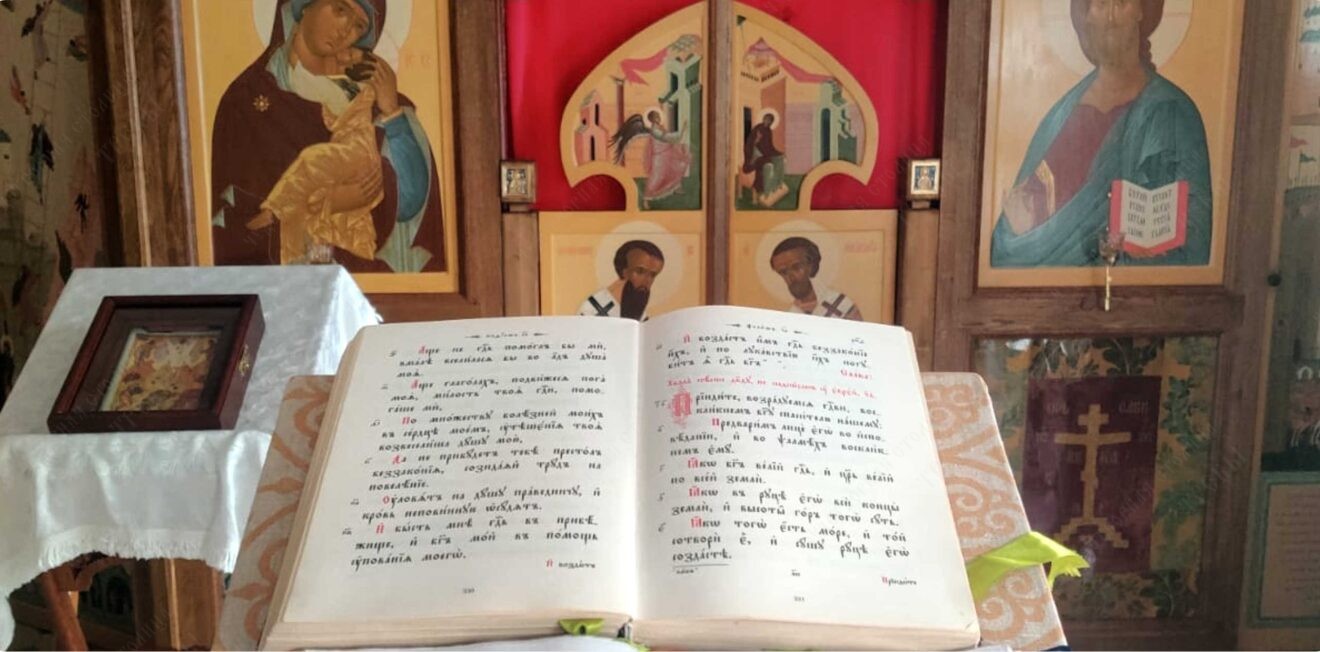 А҆́ще не гдⷭ҇ь помо́глъ бы мѝ,
вма́лѣ всели́ласѧ бы во а҆́дъ дꙋша̀
моѧ̀.
А҆́ще глаго́лахъ, подви́жесѧ нога̀
моѧ̀, ми́лость твоѧ̀ гдⷭ҇и, помо-
га́ше мѝ.
По мно́жествꙋ болѣ́зней мои́хъ
въ се́рдцѣ мое́мъ, ᲂу҆тѣшє́нїѧ твоѧ̑
возвесели́ша дꙋ́шꙋ мою̀.
Да не прибꙋ́детъ тебѣ̀ престо́лъ
беззако́нїѧ, созида́ѧй трꙋ́дъ на
повелѣ́нїе.
Оу҆ловѧ́тъ на дꙋ́шꙋ пра́ведничꙋ, и҆
кро́вь непови́ннꙋю ѡ҆сꙋ́дѧтъ.
И҆ бы́сть мнѣ̀ гдⷭ҇ь въ прибѣ́-
жище, и҆ бг҃ъ мо́й въ по́мощь
ᲂу҆пова́нїѧ моегѡ̀.
И҆ возда́стъ
И҆ возда́стъ и҆̀мъ гдⷭ҇ь беззако́нїе
и҆́хъ, и҆ по лꙋка́вствїю и҆́хъ погꙋ-
би́тъ ѧ҆̀ гдⷭ҇ь бг҃ъ
Сла́ва:
Хвала̀ пѣ́сни дв҃дꙋ, не надпи́санъ ᲂу҆ є҆врє́й,
Прїиди́те, возра́дꙋемсѧ гдⷭ҇ви, вос-
кли́кнемъ бг҃ꙋ сп҃си́телю на́шемꙋ:
Предвари́мъ лицѐ є҆гѡ̀ во и҆спо-
вѣ́данїи, и҆ во ѱалмѣ́хъ воскли́к-
немъ є҆мꙋ̀.
Ꙗ҆́кѡ бг҃ъ ве́лїй гдⷭ҇ь, и҆ цр҃ь ве́лїй
по все́й землѝ.
Ꙗ҆́кѡ въ рꙋцѣ̀ є҆гѡ̀ всѝ концы̀
землѝ, и҆ высѡты̀ го́ръ тогѡ̀ сꙋ́ть.
Ꙗ҆́кѡ тогѡ̀ є҆́сть мо́ре, и҆ то́й
сотворѝ є҆̀, и҆ сꙋ́шꙋ рꙋ́цѣ є҆гѡ̀
созда́стѣ.
Прїиди́те